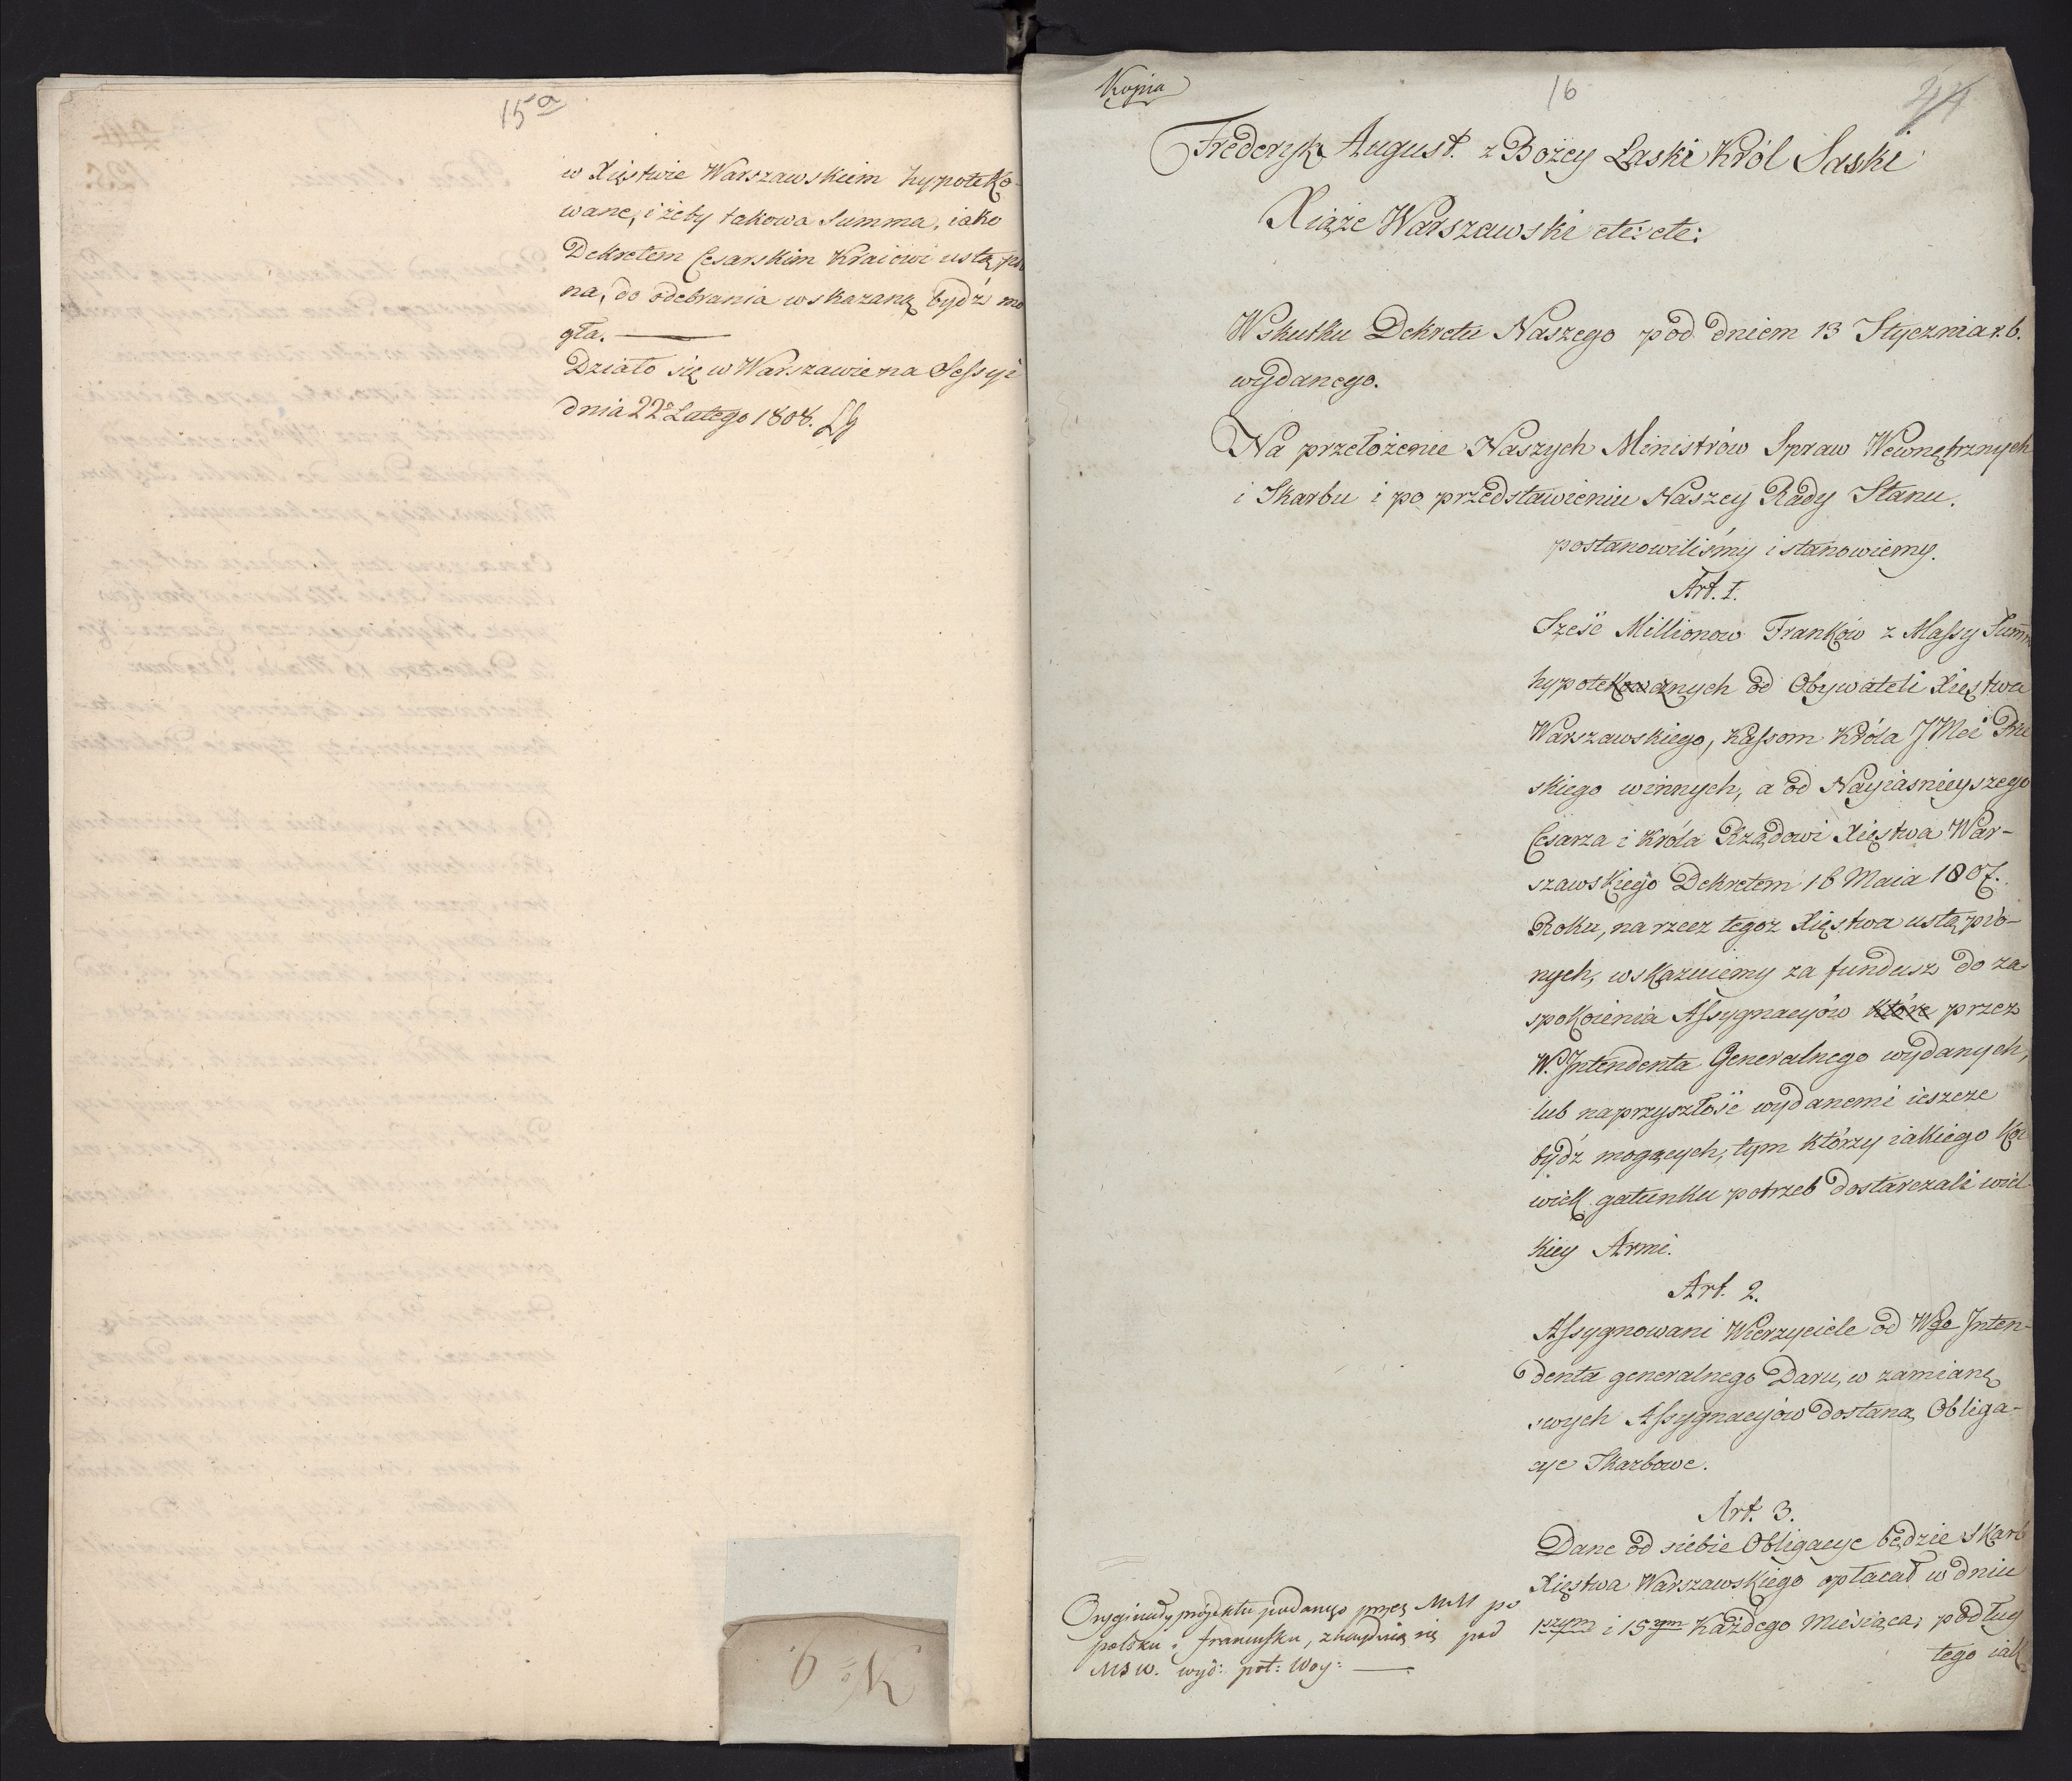 15a
w Xięstwie Warszawskiem hypoteko-
wane, i żeby takowa Summa, iako
Dekretem Cesarskim Kraiowi ustąpio
na, do odebrania wskazaną bydź mo
gła.
Działo się w Warszawie na Sessyi
dnia 22o Lutego 1808.
No 6
Kopia
16
Frederyk August. z Bożey Łaski Król Saski
Xiąże Warszawski etc: etc:
Wskutku Dekretu Naszego pod dniem 13 Stycznia r. b.
wydanego.
Na przełożenie Naszych Ministrów Spraw Wewnętrznych
i Skarbu i po przedstawieniu Naszey Rady Stanu.
postanowiliśmy i stanowiemy.
Art. 1.
Sześć Millionow Franków z Massy Summ
hypotekowanych od Obywateli Xięstwa
Warszawskiego, Kassom Króla JMci Pru
skiego winnych, a od Nayiaśnieyszego
Cesarza i Króla Rządowi Xięstwa War-
szawskiego Dekretem 16 Maia 1807.
Roku, na rzecz tegoż Xięstwa ustąpio-
nych, wskazuiemy za fundusz do za
spokoienia Assygnacyów które przez
W. Intendenta Generalnego wydanych,
lub naprzyszłość wydanemi ieszcze
bydź mogących, tym którzy iakiego kol
wiek gatunku potrzeb dostarczali wiel
kiey Armi.
Art. 2.
Assygnowani Wierzyciele od Wgo Inten-
denta generalnego Daru, w zamianę
swych Assygnacyów dostaną Obliga-
cye Skarbowe.
Art. 3.
Dane od siebie Obligacye będzie Skarb
Xięstwa Warszawskiego opłacał w dniu
1szym i 15tym Każdego Miesiąca, podług
tego iak
Oryginały projektu podanego przez MM po
polsku i francusku, znayduią się pod
MSW. wyd: poł: Woy: